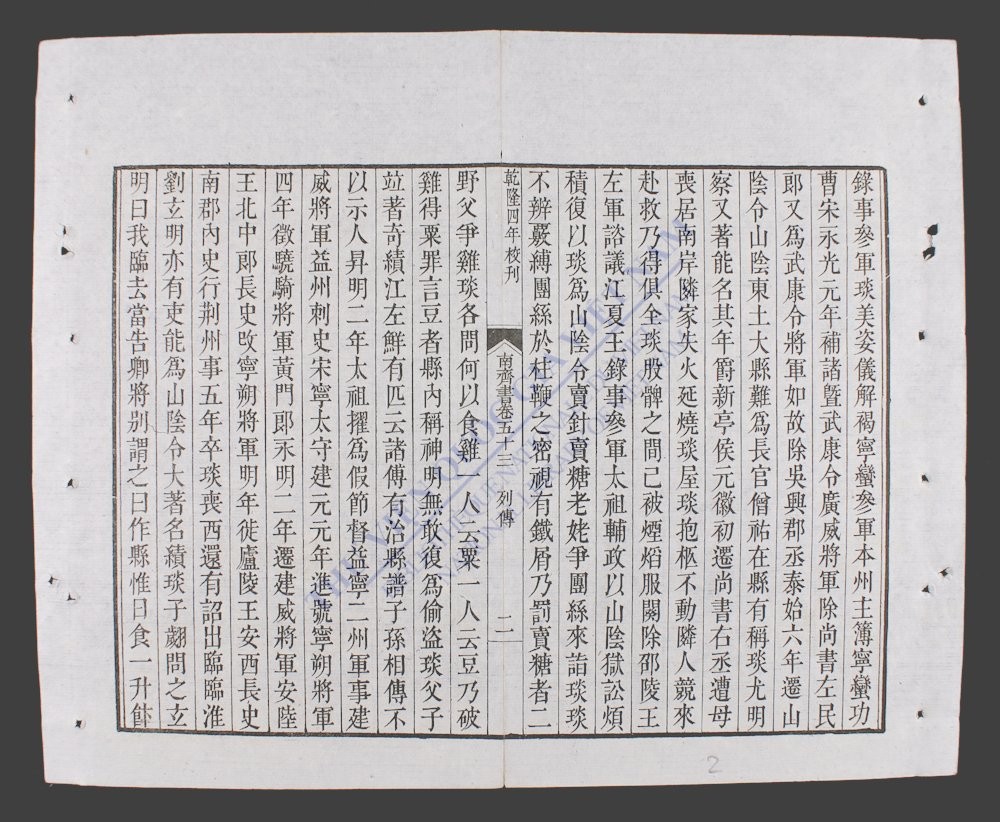 錄事參軍琰美姿儀解褐寧蠻參軍本州主簿寧蠻功
曹宋永光元年補諸暨武康令廣威將軍除尚書左民
郎又爲武康令將軍如故除吳興郡丞泰始六年遷山
陰令山陰東土大縣難爲長官僧祐在縣有稱琰尤明
察又著能名其年爵新亭侯元徽初遷尚書右丞遭母
喪居南岸隣家失火延燒琰屋琰抱柩不動隣人競來
赴救乃得俱全琰股髀之間已被煙焰服闋除邵陵王
左軍諮議江夏王錄事參軍太祖輔政以山陰獄訟煩
積復以琰爲山陰令賣針賣糖老姥爭團絲來詣琰琰
不辨覈縛團絲於柱鞭之密視有鐵屑乃罰賣糖者二
乾隆四年校刊
南齊書卷五十三 列傳
二
野父爭雞琰各問何以食雞一人云粟一人云豆乃破
雞得粟罪言豆者縣內稱神明無敢復爲偷盜琰父子
竝著奇績江左鮮有匹云諸傅有治縣譜子孫相傳不
以示人昇明二年太祖擢爲假節督益寧二州軍事建
威將軍益州刺史宋寧太守建元元年進號寧朔將軍
四年徵驍騎將軍黃門郎永明二年遷建威將軍安陸
王北中郎長史改寧朔將軍明年徙廬陵王安西長史
南郡內史行荆州事五年卒琰喪西還有詔出臨臨淮
劉玄明亦有吏能爲山陰令大著名績琰子翽問之玄
明曰我臨去當告卿將別謂之曰作縣惟日食一升飯
THƯ VIỆN QUỐC GIA VIỆT NAM
BIBLIOTHÈQUE NATIONALE DU VIETNAM
NATIONAL LIBRARY OF VIETNAM
2